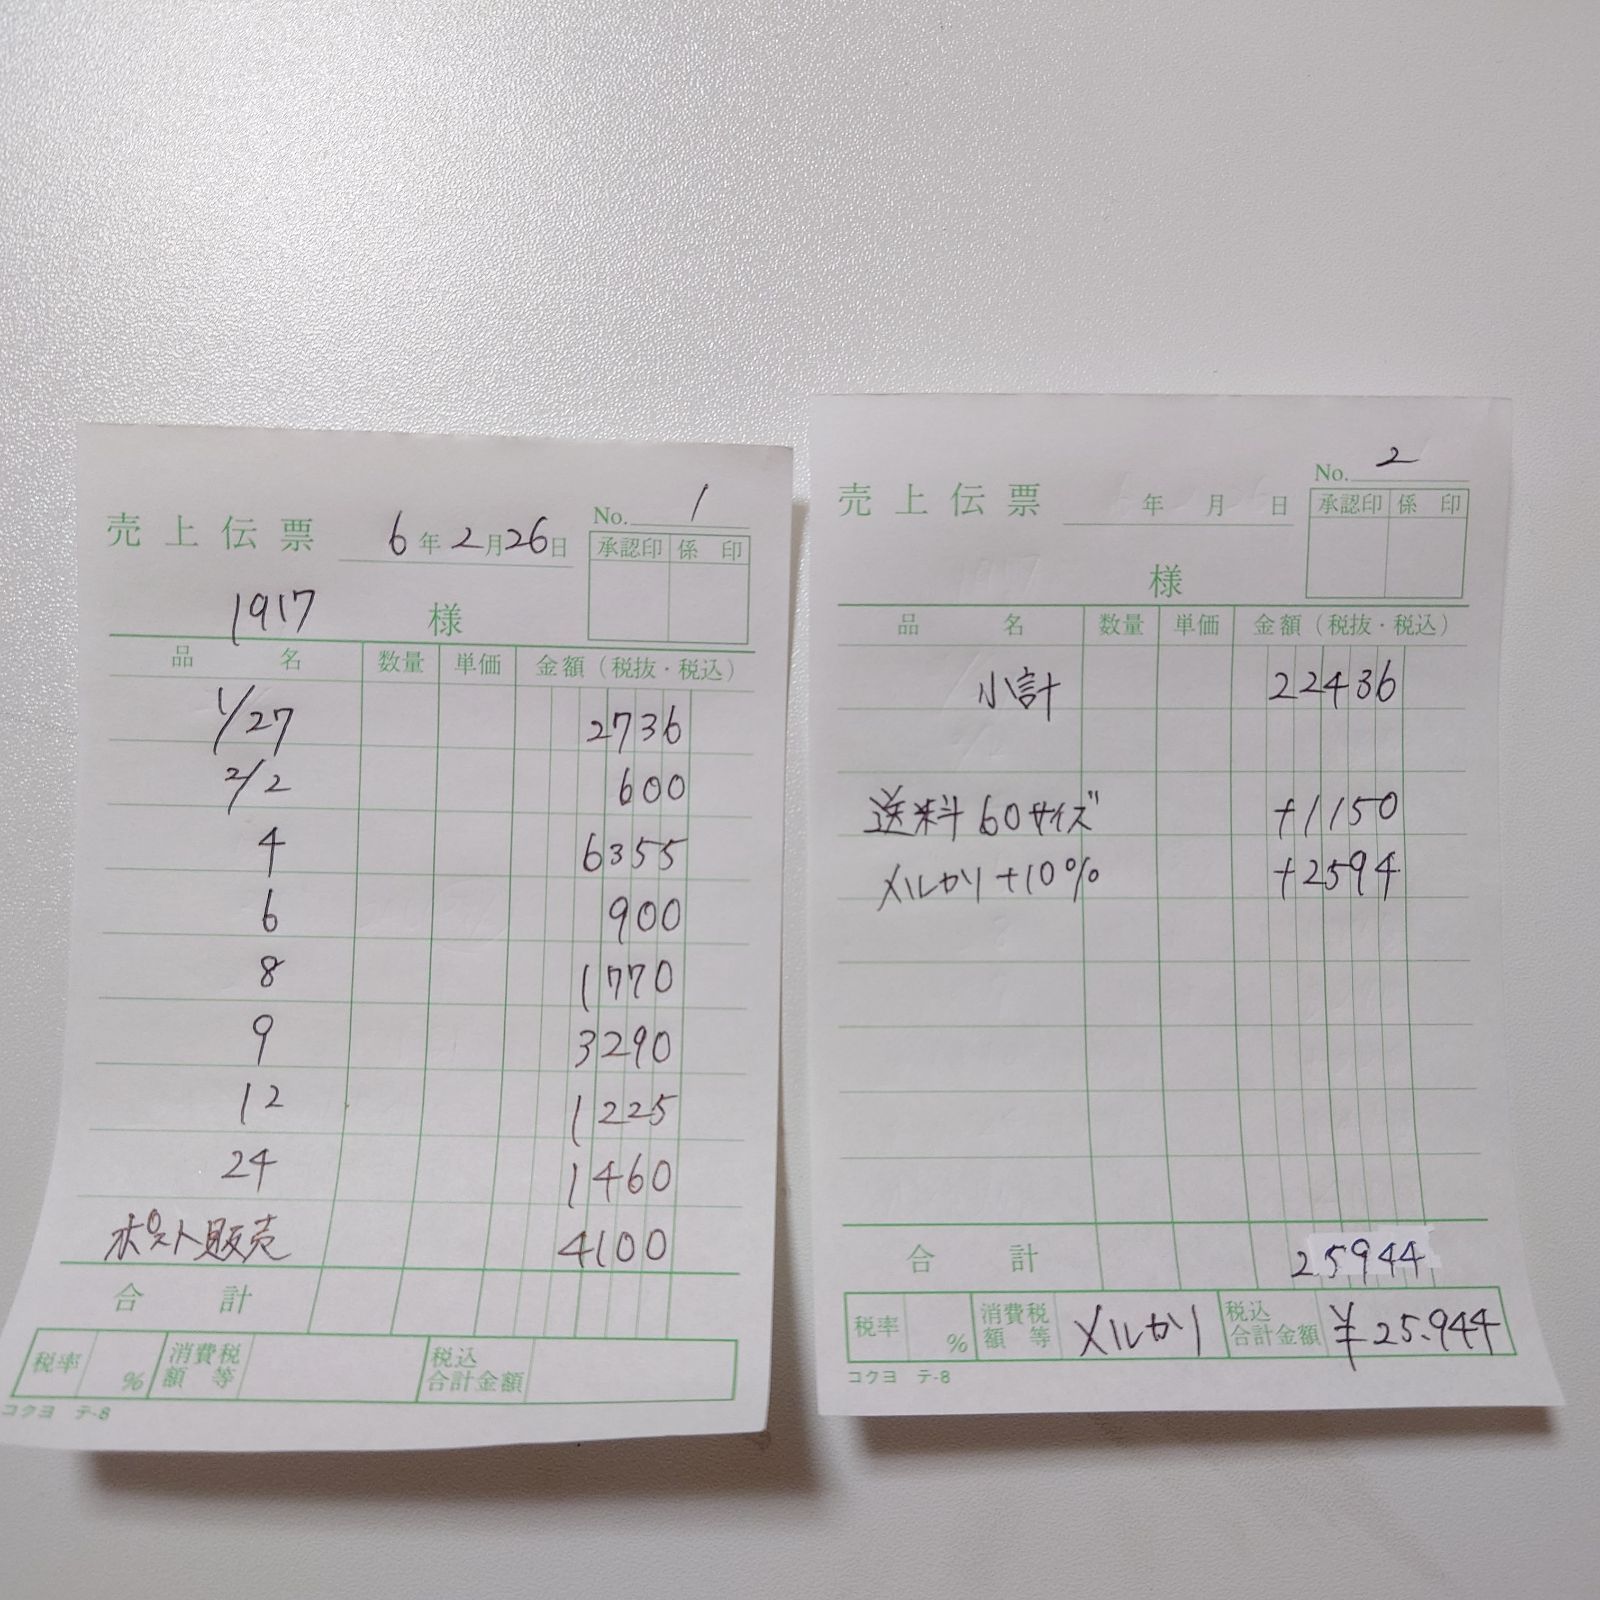 売上伝票 6年2月26日 No. 1
承認印 係印
1917 様
品名 数量 単価 金額(税抜・税込)
1/27 2736
2/2 600
4 6355
6 900
8 1770
9 3290
12 1225
24 1460
ポスト販売 4100
合計
税率 % 消費税額等 税込合計金額
コクヨ テ-8
売上伝票 年 月 日 No. 2
承認印 係印
様
品名 数量 単価 金額(税抜・税込)
小計 22436
送料60サイズ +1150
メルカリ+10% +2594
合計 25944
税率 % 消費税額等 メルカリ 税込合計金額 ¥25.944
コクヨ テ-8